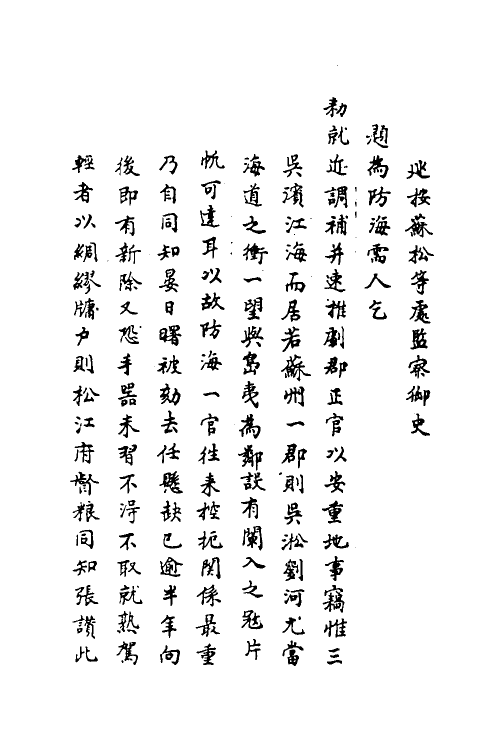 巡按蘇松等處監察御史
題為防海需人乞
勅就近調補并速推劇郡正官以安重地事竊惟三
吳濱江海而居若蘇州一郡則吳淞劉河尤當
海道之衝一望與島夷為鄰設有闌入之冦片
帆可達耳以故防海一官徃来控扼関係最重
乃自同知晏日曙被劾去任懸缺已逾半年向
後即有新除又恐手器未習不淂不取就熟駕
輕者以綢繆牖戶則松江府督粮同知張讃此